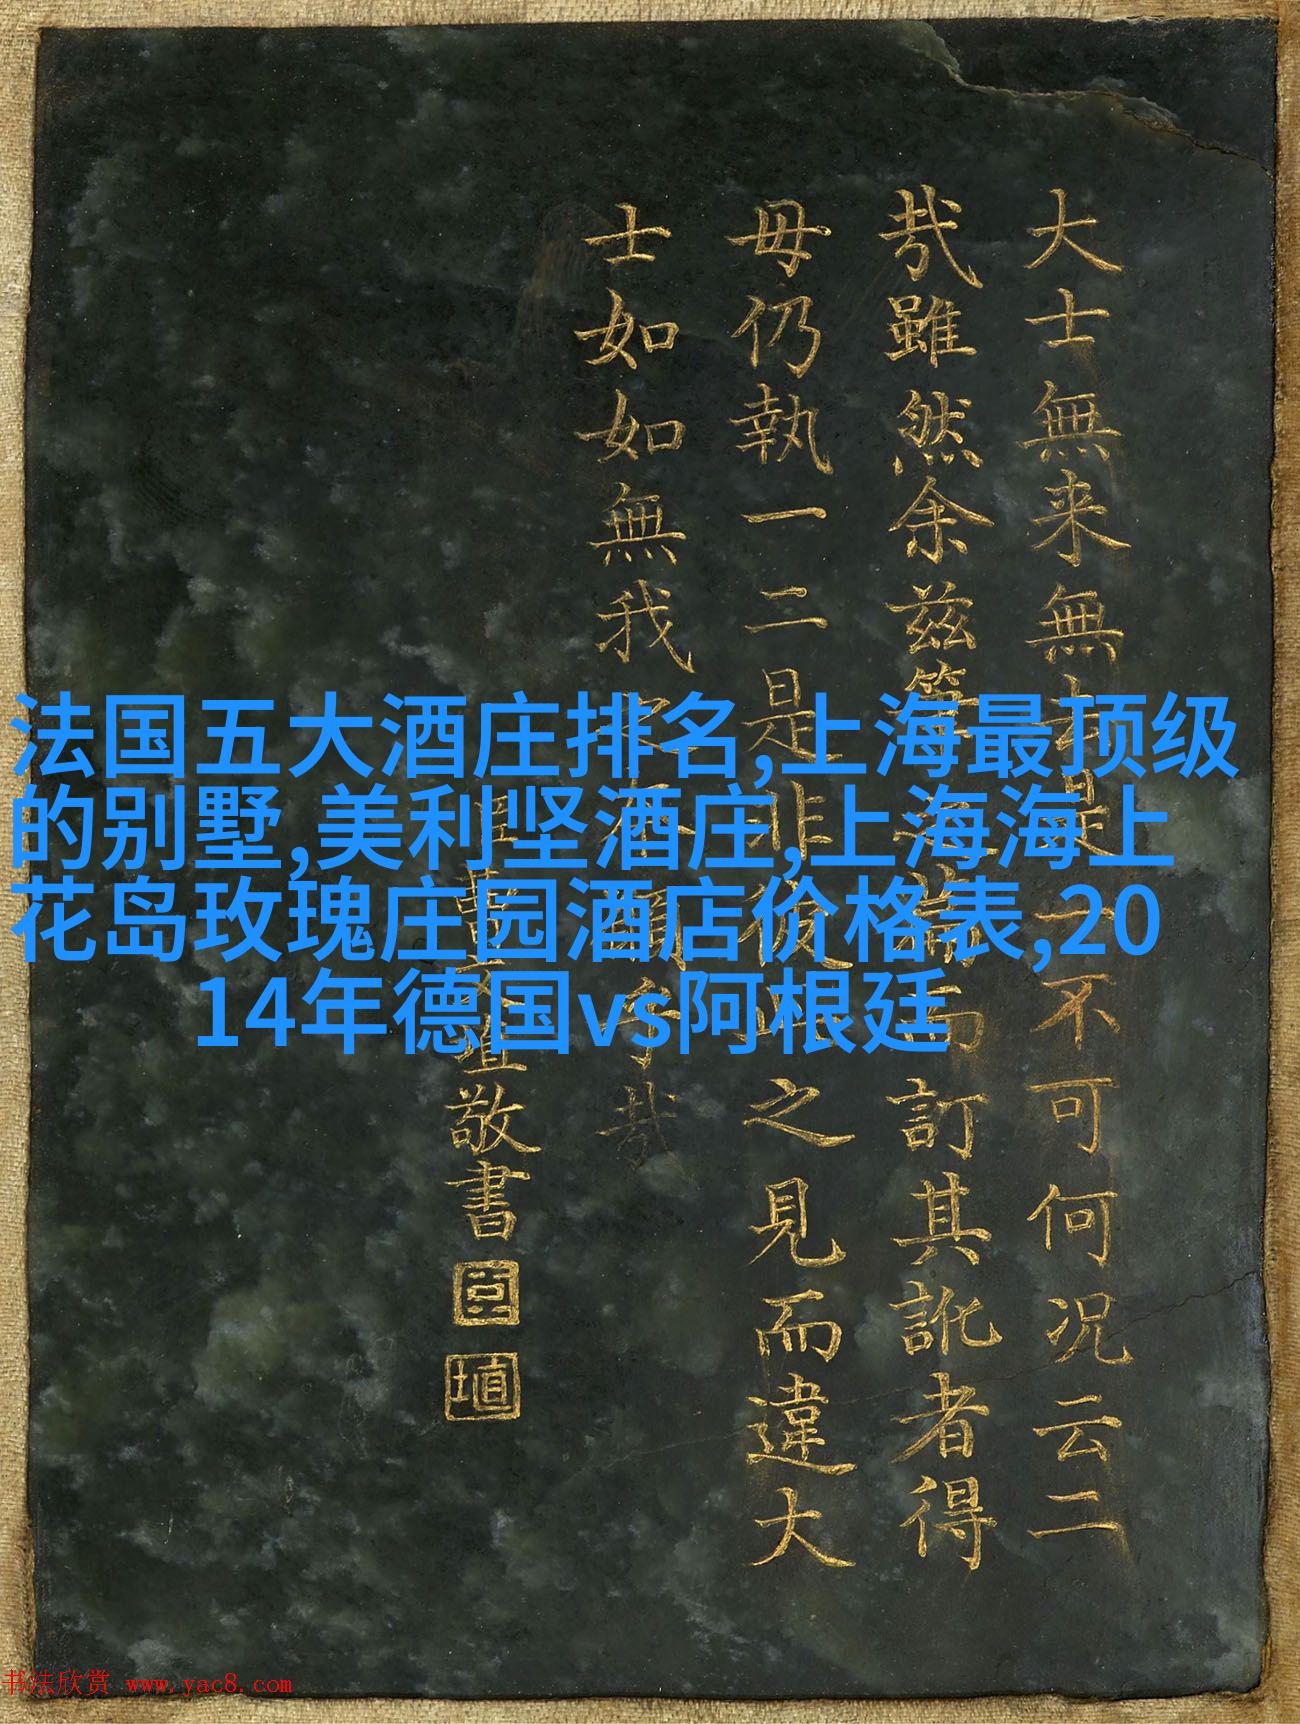 大士無来無去是一不可何況云二
哉雖然余兹筆
訂其訛者得
毋仍執一二是非彼此之見而違大
士如如無我
哉
敬書
法国五大酒庄排名,上海最顶级
的别墅,美利坚酒庄,上海海上
花岛玫瑰庄园酒店价格表,20
14年德国vs阿根廷
书法欣赏 www.yac8.com